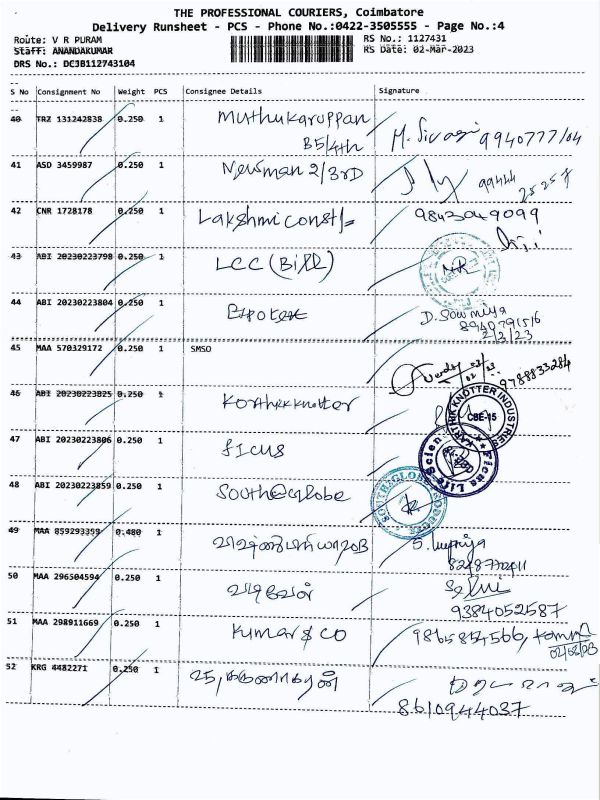 THE PROFESSIONAL COURIERS, Coimbatore
Delivery Runsheet - PCS - Phone No.:0422-3505555 - Page No.:4
Route: V R PURAM
RS No.: 1127431
Staff: ANANDAKUMAR
RS Date: 02-Mar-2023
DRS No.: DCJB112743104
S No Consignment No Weight PCS Consignee Details Signature
40 TRZ 131242838 0.250 1 Muthukaruppan
B5/4th
9940777104
41 ASD 3459987 0.250 1 Newman 2/3RD
99444
25257
42 CNR 1728178 0.250 1 Lakshmi const 9843049099
43 ABI 20230223798 0.250 1 LCC (Bill)
44 ABI 20230223804 0.250 1
D. Sowmiya
8940791516
2/3/23
45 MAA 570329172 0.250 1 SMSO
9788833284
46 ABI 20230223825 0.250 1 Karthikknotter
KARTHIK KNOTTER INDUSTRIES
CBE-15
47 ABI 20230223806 0.250 1 ficus
Ficus Life Scien
48 ABI 20230223859 0.250 1 Southglobe
49 MAA 859293359 0.480 1
50 MAA 296504594 0.250 1 வடிவேல்
9384052587
51 MAA 298911669 0.250 1 Kumar & CO
02/03/23
52 KRG 4482271 0.250 1
8610944037